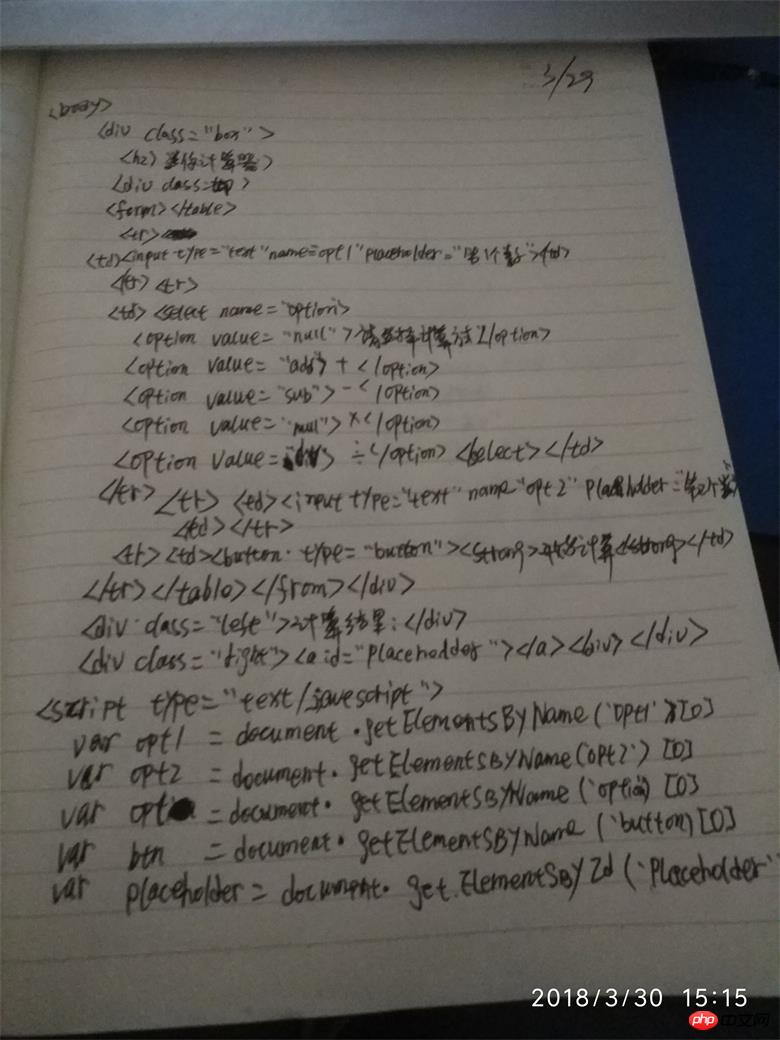 3/29
<body>
<div class="box">
<h2>迷你计算器>
<div class= top>
<form></table>
<tr>
<td><input type="text" name="opt1" placeholder="第1个数"><td>
<tr> <tr>
<td> <select name="option">
<option value="null">请选择计算方法</option>
<option value="add"> + </option>
<option value="sub"> - </option>
<option value="mul"> × </option>
<option value="div"> ÷ </option> <select></td>
</tr> <tr> <td><input type="text" name "opt2" placeholder="第2个数
<td></tr>
<tr><td><button type="button"><strong>开始计算<strong></td>
</tr></table></from></div>
<div class="left">计算结果:</div>
<div class="right"><a id="placeholder"></a><div></div>
<script type="text/javascript">
var opt1 = document.getElementsByName('opt1')[0]
var opt2 = document.getElementsByName(opt2')[0]
var = document.getElementsByName('option)[0]
var btn = document.getElementsByName('button)[0]
var placeholder = document.get.ElementsById('placeholder'
2018/3/30 15:15
php 中文网